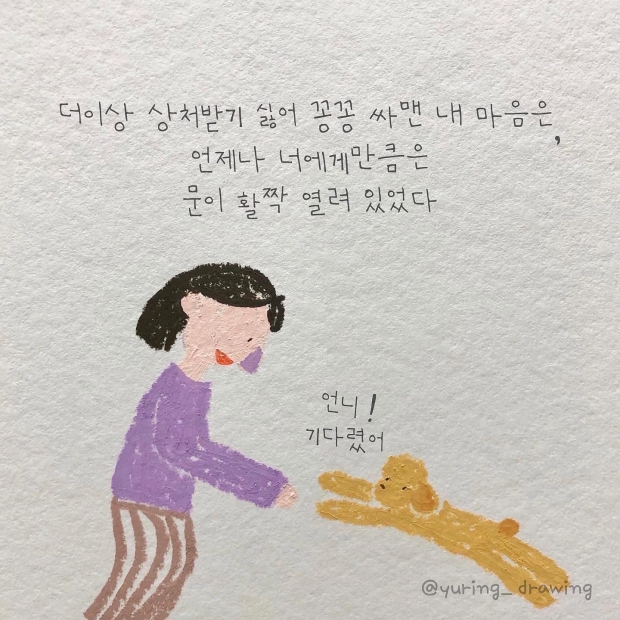 더이상 상처받기 싫어 꽁꽁 싸맨 내 마음은,
언제나 너에게만큼은
문이 활짝 열려 있었다
언니!
기다렸어
@yuring_drawing